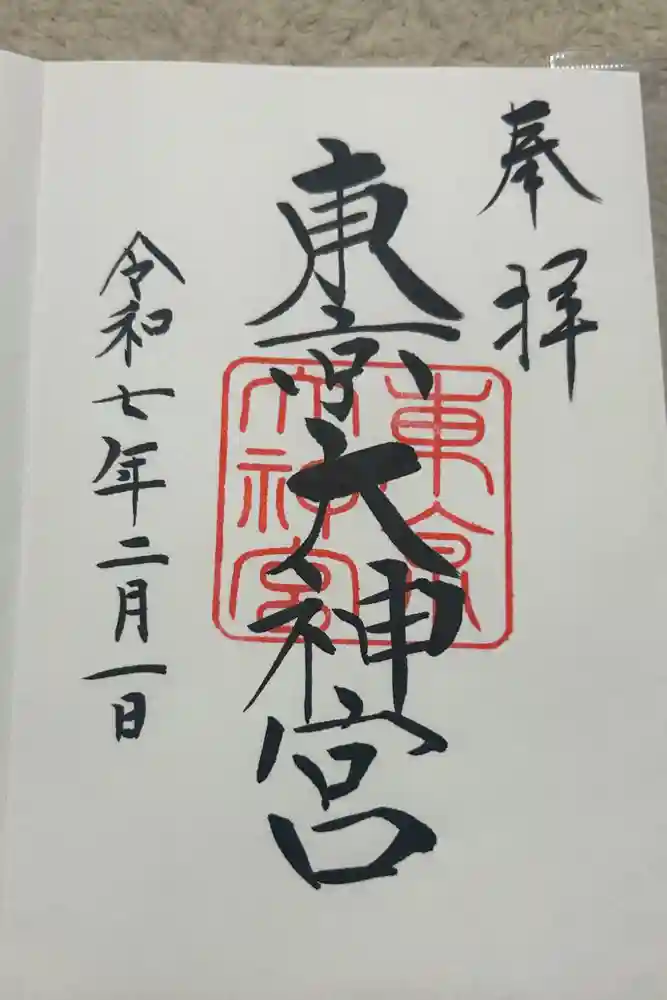 奉拝
東京大神宮
東京大神宮
令和七年二月一日